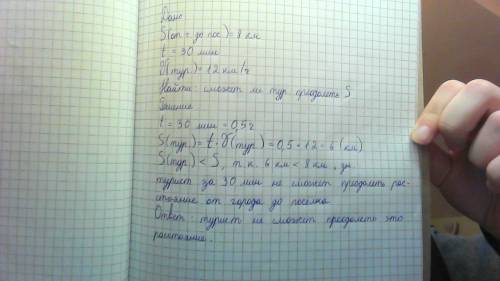 Дано
S(от г до пос) = 8 км
t = 30 мин
V(тур.) = 12 км/ч
Найти: сможет ли тур. преодолеть S
Решение
t = 30 мин = 0,5 ч
S(тур.) = t · V(тур.) = 0,5 · 12 = 6 (км)
S(тур.) < S, т.к. 6 км < 8 км,
турист за 30 мин не сможет преодолеть рас-
стояние от города до поселка
Ответ: турист не сможет преодолеть это
расстояние.